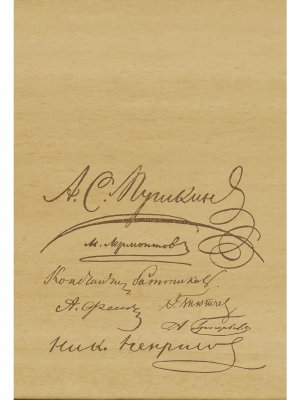 А. С. Пушкин
М. Лермонтов
Константин Батюшков
А. Фет Ф. Тютчев
А. Григорьев
Ник. Некрасов